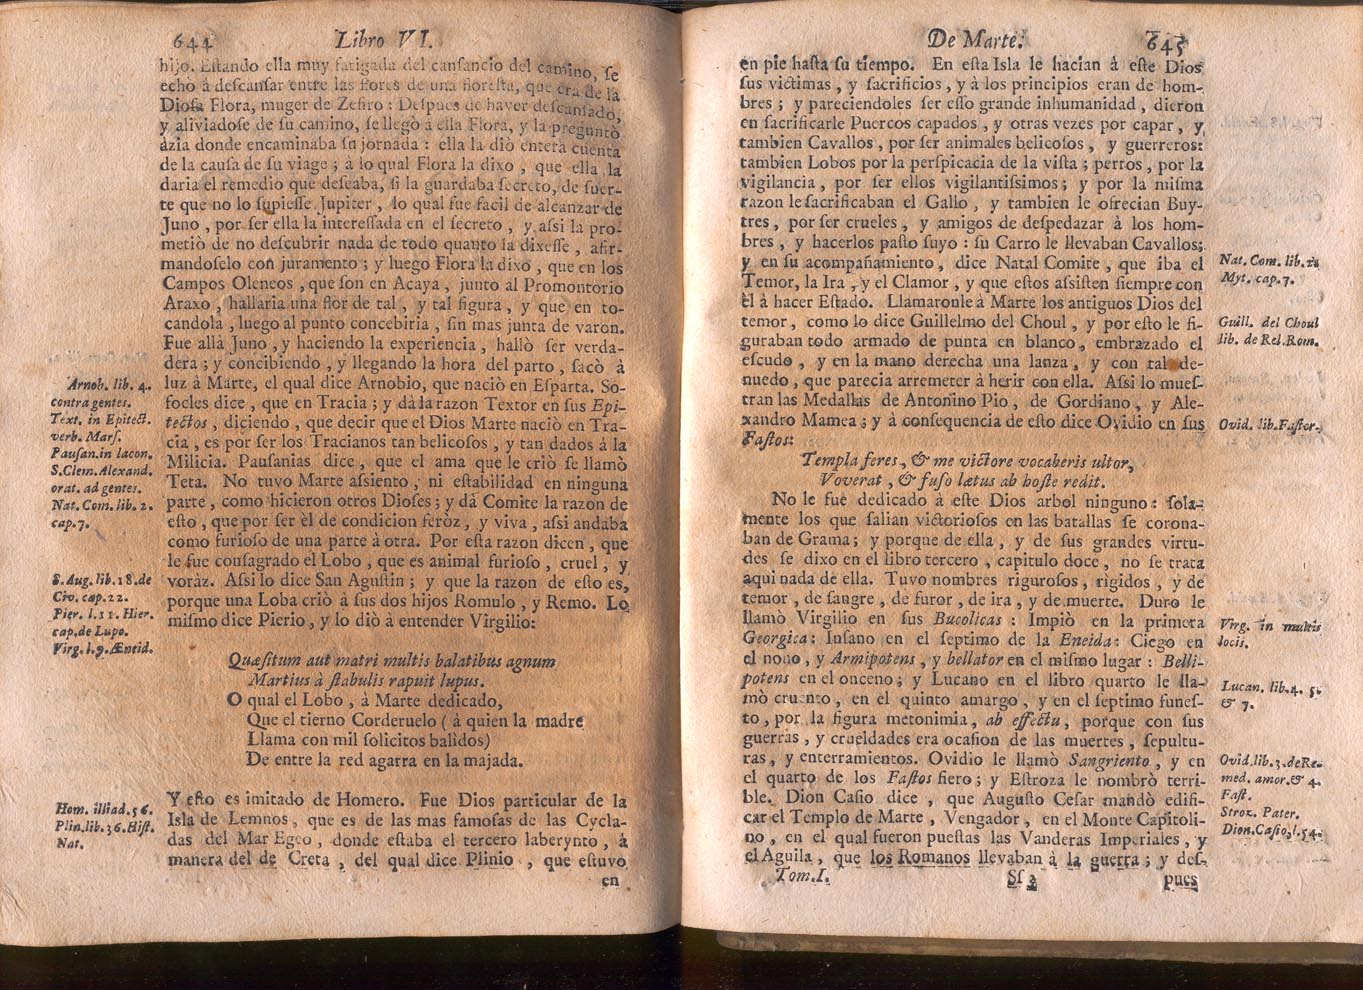 644
Libro VI.
hijo. Eſtando ella muy fatigada del canſancio del camino, ſe
echò à deſcanſar entre las flores de una floreſta, que era de la
Dioſa Flora, muger de Zefiro: Deſpues de haver deſcanſado,
y aliviadoſe de ſu camino, ſe llegò à ella Flora, y la preguntò
àzia donde encaminaba ſu jornada: ella la diò entera cuenta
de la cauſa de ſu viage; à lo qual Flora la dixo, que ella la
daria el remedio que deſeaba, ſi la guardaba ſecreto, de ſuer-
te que no lo ſupieſſe Jupiter, lo qual fue facil de alcanzar de
Juno, por ſer ella la intereſſada en el ſecreto, y aſsi la pro-
metiò de no deſcubrir nada de todo quanto la dixeſſe, afir-
mandoſelo con juramento; y luego Flora la dixo, que en los
Campos Oleneos, que ſon en Acaya, junto al Promontorio
Araxo, hallaria una flor de tal, y tal figura, y que en to-
candola, luego al punto concebiria, ſin mas junta de varon.
Fue allà Juno, y haciendo la experiencia, hallò ſer verda-
dera; y concibiendo, y llegando la hora del parto, ſacò à
luz à Marte, el qual dice Arnobio, que naciò en Eſparta. So-
focles dice, que en Tracia; y dà la razon Textor en ſus Epi-
tectos, diciendo, que decir que el Dios Marte naciò en Tra-
cia, es por ſer los Tracianos tan belicoſos, y tan dados à la
Milicia. Pauſanias dice, que el ama que le criò ſe llamò
Teta. No tuvo Marte aſsiento, ni eſtabilidad en ninguna
parte, como hicieron otros Dioſes; y dà Comite la razon de
eſto, que por ſer èl de condicion feròz, y viva, aſsi andaba
como furioſo de una parte à otra. Por eſta razon dicen, que
le fue conſagrado el Lobo, que es animal furioſo, cruel, y
voràz. Aſsi lo dice San Aguſtin; y que la razon de eſto es,
porque una Loba criò à ſus dos hijos Romulo, y Remo. Lo
miſmo dice Pierio, y lo diò à entender Virgilio:
Quæſitum aut matri multis balatibus agnum
Martius à ſtabulis rapuit lupus.
O qual el Lobo, à Marte dedicado,
Que el tierno Corderuelo (à quien la madre
Llama con mil ſolicitos balidos)
De entre la red agarra en la majada.
Y eſto es imitado de Homero. Fue Dios particular de la
Isla de Lemnos, que es de las mas famoſas de las Cycla-
das del Mar Egeo, donde eſtaba el tercero laberynto, à
manera del de Creta, del qual dice Plinio, que eſtuvo
en
Arnob. lib. 4.
contra gentes.
Text. in Epitect.
verb. Marſ.
Pauſan. in lacon.
S. Clem. Alexand.
orat. ad gentes.
Nat. Com. lib. 2.
cap. 7.
S. Aug. lib. 18. de
Civ. cap. 22.
Pier. l. 11. Hier.
cap. de Lupo.
Virg. l. 9. Æneid.
Hom. illiad. 56.
Plin. lib. 36. Hiſt.
Nat.
De Marte.
645
en pie haſta ſu tiempo. En eſta Isla le hacian à eſte Dios
ſus victimas, y ſacrificios, y à los principios eran de hom-
bres; y pareciendoles ſer eſſo grande inhumanidad, dieron
en ſacrificarle Puercos capados, y otras vezes por capar, y
tambien Cavallos, por ſer animales belicoſos, y guerreros:
tambien Lobos por la perſpicacia de la viſta; perros, por la
vigilancia, por ſer ellos vigilantiſsimos; y por la miſma
razon le ſacrificaban el Gallo, y tambien le ofrecian Buy-
tres, por ſer crueles, y amigos de deſpedazar à los hom-
bres, y hacerlos paſto ſuyo: ſu Carro le llevaban Cavallos;
y en ſu acompañamiento, dice Natal Comite, que iba el
Temor, la Ira, y el Clamor, y que eſtos aſsiſten ſiempre con
èl à hacer Eſtado. Llamaronle à Marte los antiguos Dios del
temor, como lo dice Guillelmo del Choul, y por eſto le fi-
guraban todo armado de punta en blanco, embrazado el
eſcudo, y en la mano derecha una lanza, y con tal de-
nuedo, que parecia arremeter à herir con ella. Aſsi lo mueſ-
tran las Medallas de Antonino Pio, de Gordiano, y Ale-
xandro Mamea; y à conſequencia de eſto dice Ovidio en ſus
Faſtos:
Templa feres, & me victore vocaberis ultor,
Voverat, & fuſo lætus ab hoſte redit.
No le fue dedicado à eſte Dios arbol ninguno: ſola-
mente los que ſalian victorioſos en las batallas ſe corona-
ban de Grama; y porque de ella, y de ſus grandes virtu-
des ſe dixo en el libro tercero, capitulo doce, no ſe trata
aqui nada de ella. Tuvo nombres riguroſos, rigidos, y de
temor, de ſangre, de furor, de ira, y de muerte. Duro le
llamò Virgilio en ſus Bucolicas: Impiò en la primera
Georgica: Inſano en el ſeptimo de la Eneida: Ciego en
el nono, y Armipotens, y bellator en el miſmo lugar: Belli-
potens en el onceno; y Lucano en el libro quarto le lla-
mò cruento, en el quinto amargo, y en el ſeptimo funeſ-
to, por la figura metonimia, ab effectu, porque con ſus
guerras, y crueldades era ocaſion de las muertes, ſepultu-
ras, y enterramientos. Ovidio le llamò Sangriento, y en
el quarto de los Faſtos fiero; y Eſtroza le nombrò terri-
ble. Dion Caſio dice, que Auguſto Ceſar mandò edifi-
car el Templo de Marte, Vengador, en el Monte Capitoli-
no, en el qual fueron pueſtas las Vanderas Imperiales, y
el Aguila, que los Romanos llevaban à la guerra; y deſ-
Tom. I.
Sſ 3
pues
Nat. Com. lib. 2.
Myt. cap. 7.
Guill. del Choul
lib. de Rel. Rom.
Ovid. lib. Faſtor.
Virg. in multis
locis.
Lucan. lib. 4. 5.
& 7.
Ovid. lib. 3. de Re-
med. amor. & 4.
Faſt.
Stroz. Pater.
Dion. Caſio, l. 54.